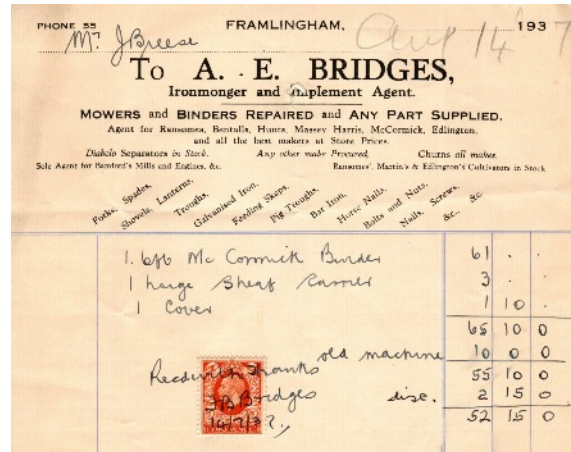 PHONE 55 FRAMLINGHAM, Aug 14 1937
Mr J Breese
To A. E. BRIDGES,
Ironmonger and Implement Agent.
MOWERS and BINDERS REPAIRED and ANY PART SUPPLIED.
Agent for Ransomes, Bentalls, Hunts, Massey Harris, McCormick, Edlington,
and all the best makers at Store Prices.
Diabolo Separators in Stock. Any other make Procured. Churns all makes.
Sole Agent for Bamford's Mills and Engines, &c. Ransomes', Martin's & Edlington's Cultivators in Stock
Forks, Spades,
Shovels, Lanterns,
Troughs,
Galvanised Iron,
Feeding Skeps,
Pig Troughs,
Bar Iron,
Horse Nails,
Bolts and Nuts,
Nails, Screws,
&c., &c
1. 6ft6 Mc Cormick Binder 61 . .
1 Large Sheaf Carrier 3 . .
1 Cover 1 10 .
65 10 0
old machine 10 0 0
Recd with Thanks 55 10 0
Bridges disc. 2 15 0
52 15 0